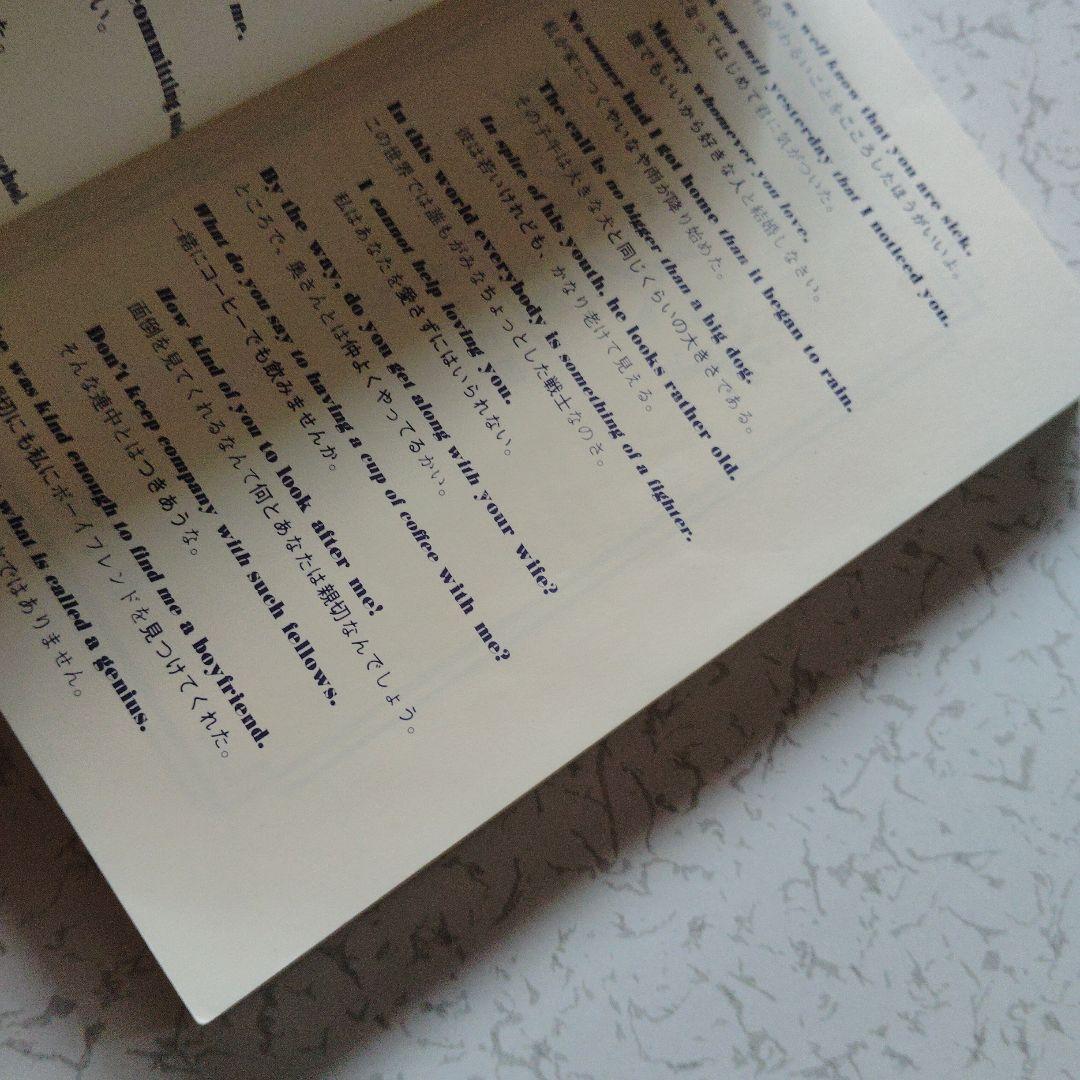 me.
い。
committing
as well know that you are sick.
ことをこころしたほうがいいよ。
not until yesterday that I noticed you.
なってはじめて君に気がついた。
Marry whomever you love.
誰でもいいから好きな人と結婚しなさい。
No sooner had I got home than it began to rain.
私が家につくやいなや雨が降り始めた。
The calf is no bigger than a big dog.
その子牛は大きな犬と同じくらいの大きさである。
In spite of his youth, he looks rather old.
彼は若いけれども、かなり老けて見える。
In this world everybody is something of a fighter.
この世界では誰もがみなちょっとした戦士なのさ。
I cannot help loving you.
私はあなたを愛さずにはいられない。
By the way, do you get along with your wife?
ところで、奥さんとは仲よくやってるかい。
What do you say to having a cup of coffee with me?
一緒にコーヒーでも飲みませんか。
How kind of you to look after me!
面倒を見てくれるなんて何とあなたは親切なんでしょう。
Don't keep company with such fellows.
そんな連中とはつきあうな。
was kind enough to find me a boyfriend.
切にも私にボーイフレンドを見つけてくれた。
what is called a genius.
ではありません。